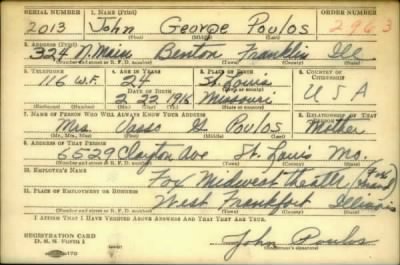 SERIAL NUMBER 1. NAME (Print) ORDER NUMBER
2013 John George Poulos 2963
(First) (Middle) (Last)
2. ADDRESS (Print)
324 N. Main Benton Franklin Ill
(Number and street or R. F. D. number) (Town) (County) (State)
3. TELEPHONE 4. AGE IN YEARS 5. PLACE OF BIRTH 6. COUNTRY OF CITIZENSHIP
116 W.F. 24 St. Louis
DATE OF BIRTH U S A
2 23 1916 Missouri
(Exchange) (Number) (Mo.) (Day) (Yr.) (State or country)
7. NAME OF PERSON WHO WILL ALWAYS KNOW YOUR ADDRESS 8. RELATIONSHIP OF THAT PERSON
Mrs. Vasso G Poulos Mother
(Mr., Mrs., Miss) (First) (Middle) (Last)
9. ADDRESS OF THAT PERSON
6529 Clayton Ave St. Louis Mo.
(Number and street or R. F. D. number) (Town) (County) (State)
10. EMPLOYER'S NAME
Fox Midwest Theatre
11. PLACE OF EMPLOYMENT OR BUSINESS
West Frankfort Illinois
(Number and street or R. F. D. number) (Town) (County) (State)
I AFFIRM THAT I HAVE VERIFIED ABOVE ANSWERS AND THAT THEY ARE TRUE.
REGISTRATION CARD
D. S. S. FORM 1 John Poulos
(Registrant's signature)